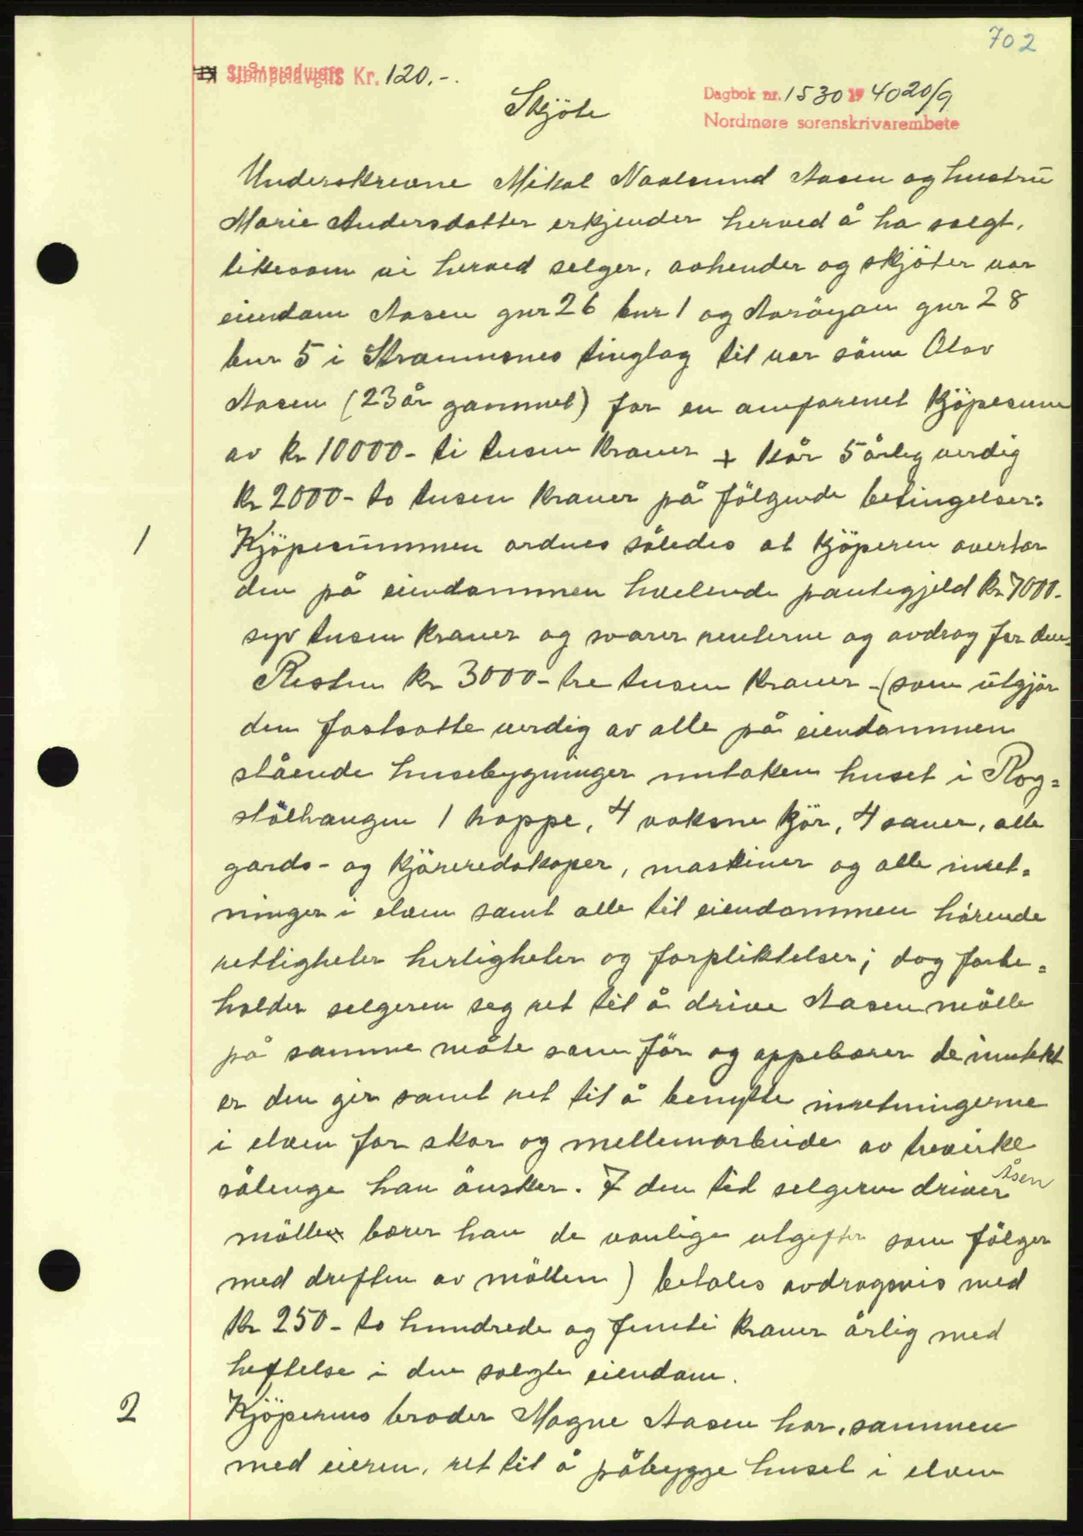 702
Stempelavgift Kr. 120.-.
Dagbok nr. 1530 19 40 20/9
Skjöte
Nordmøre sorenskrivarembete
Underskrevne Mikal Naalsund Aasen og hustru
Marie Andersdatter erkjender herved å ha solgt,
likesom vi herved selger, avhender og skjöter vor
eiendom Aasen gnr 26 bnr 1 og Aasöyan gnr 28
bnr 5 i Straumsnes tinglag til vor sönn Olav
Aasen (23 år gammel) for en omforenet kjöpesum
av kr 10000- ti tusen kroner + kår 5 årlig verdig
kr 2000- to tusen kroner på fölgende betingelser:
1 Kjöpesummen ordnes således at kjöperen overtar
den på eiendommen hvilende pantegjeld kr 7000-
syv tusen kroner og svarer renterne og avdrag for den.
Resten kr 3000- tre tusen kroner - (som utgjör
den fastsatte verdig av alle på eiendommen
stående husebygninger untaken huset i Rog=
stölhaugen 1 hoppe, 4 voksne kjör, 4 sauer, alle
gards- og kjöreredskaper, maskiner og alle inret=
ninger i elven samt alle til eiendommen hörende
rettigheter herligheter og forpliktelser; dog forbe=
holder selgeren seg ret til å drive Aasen mölle
på samme måte som för og oppebærer de inntekt
er den gir samt ret til å benytte inretningerne
i elven for skur og mellemarbeide av trevirke
sålenge han önsker. I den tid selgeren driver Åsen
möllen bærer han de vanlige utgifter som fölger
med driften av möllen) betales avdragsvis med
kr 250- to hundrede og femti kroner årlig med
heftelse i den solgte eiendom.
2 Kjöperens broder Magne Aasen har, sammen
med eieren, ret til å påbygge huset i elven